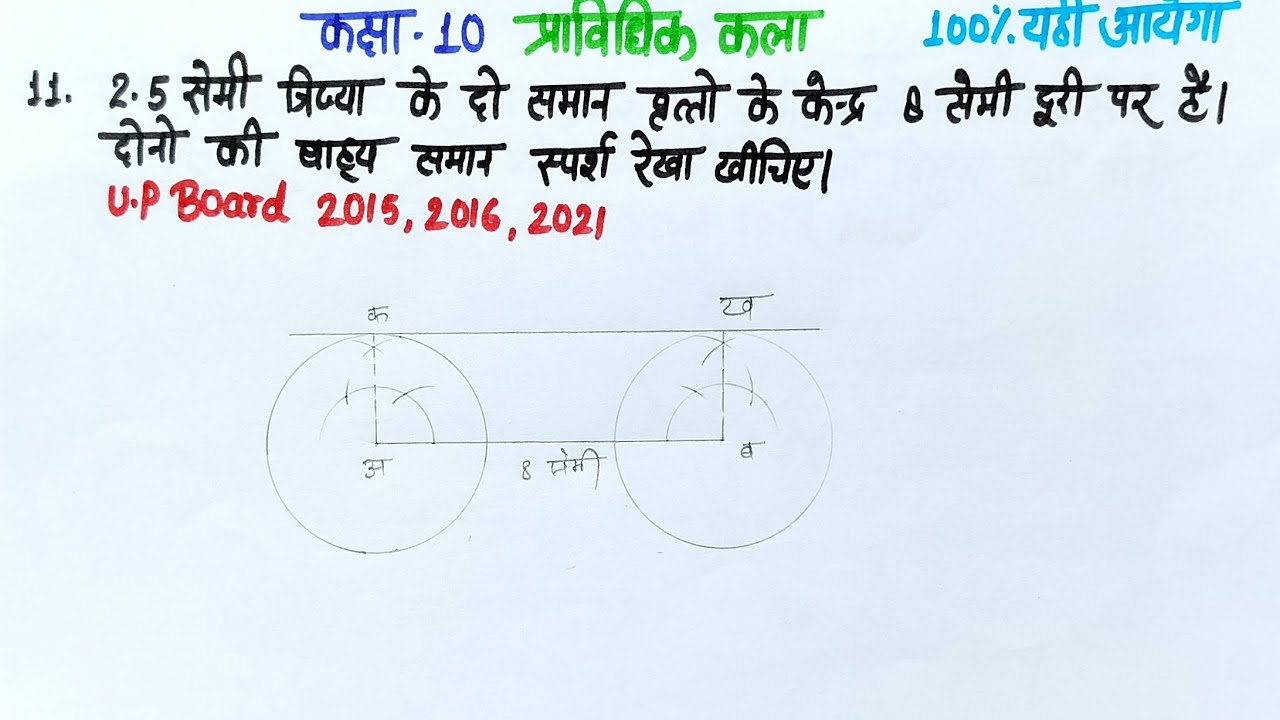 कक्षा - 10 प्राविधिक कला 100% यही आयेगा
11. 2.5 सेमी त्रिज्या के दो समान वृत्तो के केन्द्र 8 सेमी दूरी पर है।
दोनो की बाह्य समान स्पर्श रेखा खीचिए।
U.P Board 2015, 2016, 2021
क ख
अ 8 सेमी ब